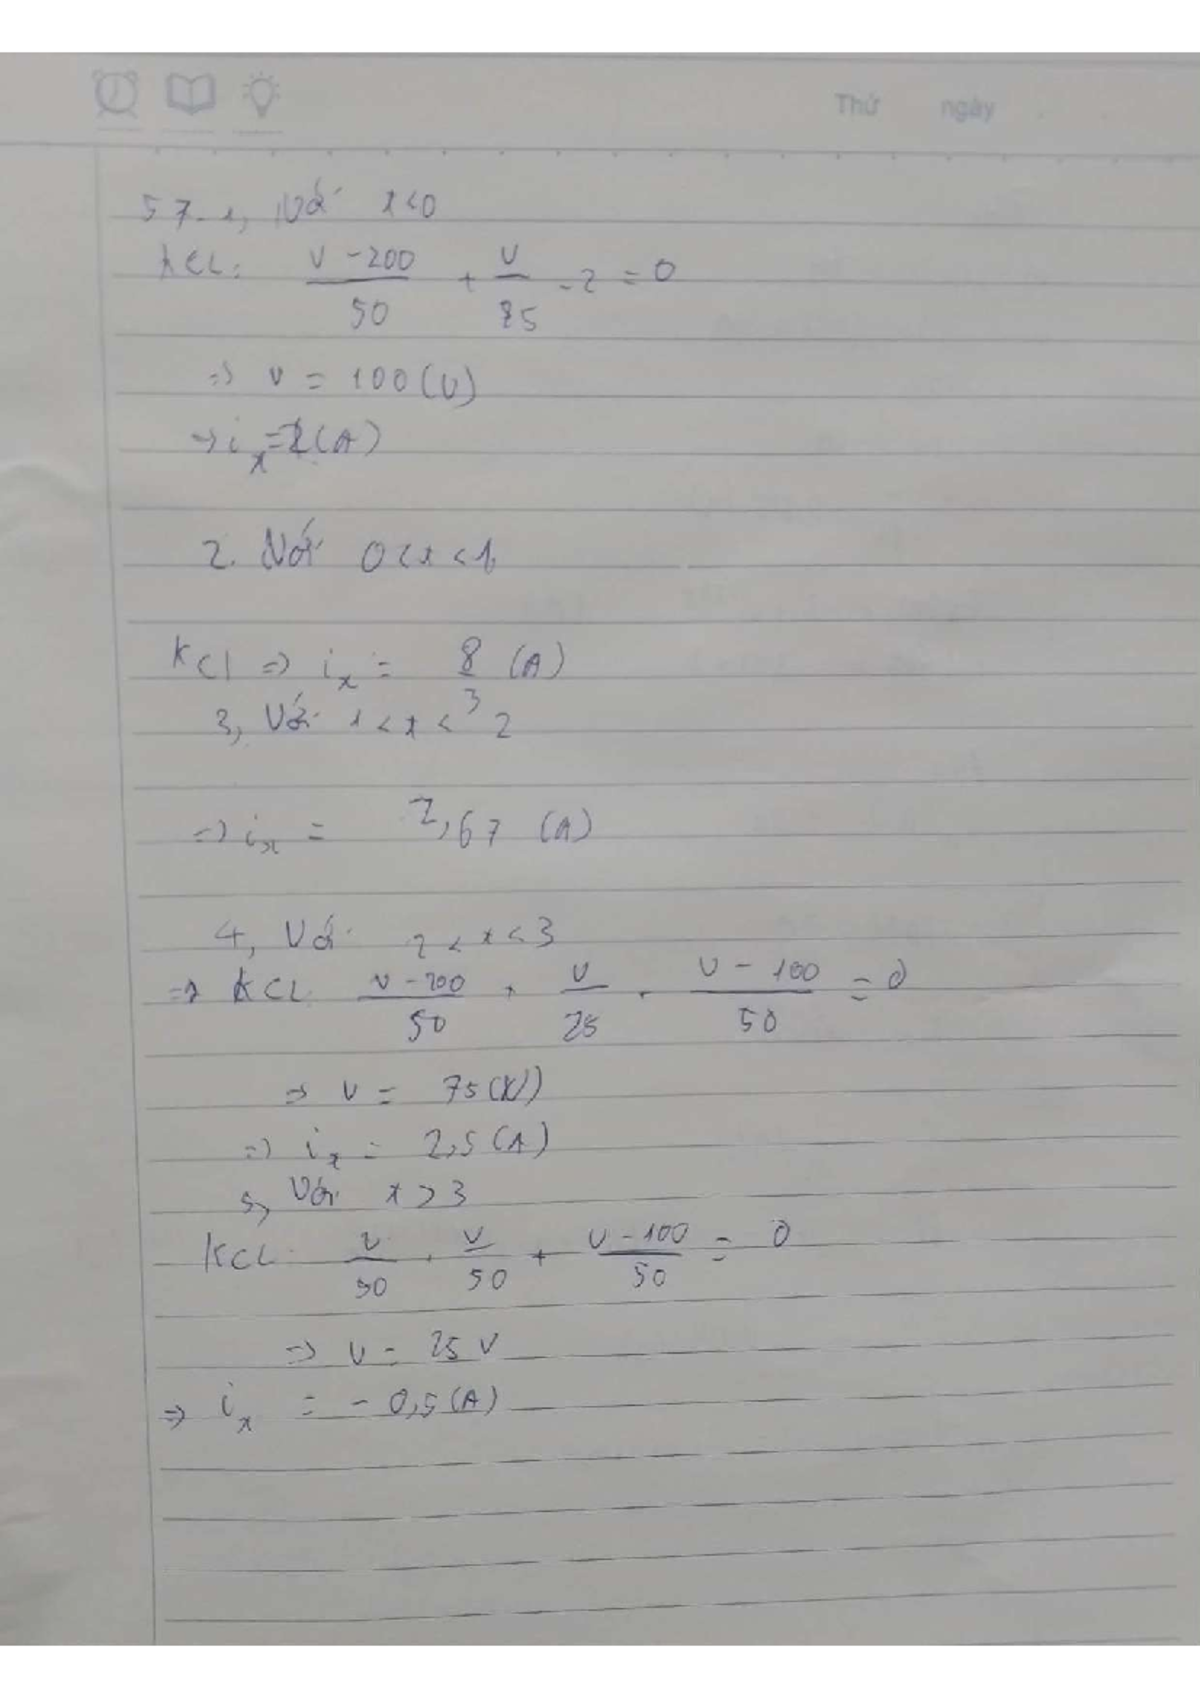 Thứ ngày
57-1, Với x<0
KCL: V-200/50 + V/25 - 2 = 0
=> V = 100(V)
=> ix = 2(A)
2. Với 0<x<1
KCl => ix = 8/3 (A)
3, Với 1<x<2
=> ix = 2,67 (A)
4, Với 2<x<3
=> KCL V-200/50 + V/25 + V-100/50 = 0
=> V = 75(V)
=> ix = 2,5(A)
5, Với x>3
KCL V/50 + V/50 + V-100/50 = 0
=> V = 25 V
=> ix = -0,5(A)